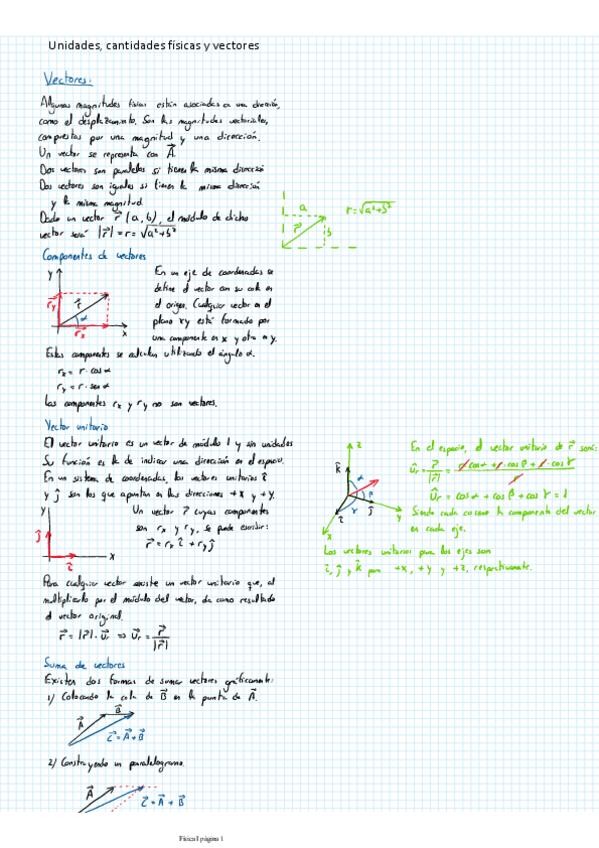 Unidades, cantidades físicas y vectores
Vectores:
Algunas magnitudes físicas están asociadas a una dirección,
como el desplazamiento. Son las magnitudes vectoriales,
compuestas por una magnitud y una dirección.
Un vector se representa con A⃗.
Dos vectores son paralelos si tienen la misma dirección
Dos vectores son iguales si tienen la misma dirección
y la misma magnitud.
Dado un vector r⃗ (a, b), el módulo de dicho
vector será |r⃗| = r = √(a²+b²)
a
r = √(a²+b²)
r⃗
b
Componentes de vectores
y
r⃗y
r⃗
α
r⃗x
x
En un eje de coordenadas se
define el vector con su cola en
el origen. Cualquier vector en el
plano xy está formado por
una componente en x y otra en y.
Estas componentes se calculan utilizando el ángulo α.
rx = r · cos α
ry = r · sen α
Las componentes rx y ry no son vectores.
Vector unitario
El vector unitario es un vector de módulo 1 y sin unidades.
Su función es la de indicar una dirección en el espacio.
En un sistema de coordenadas, los vectores unitarios î
y ĵ son los que apuntan en las direcciones +x y +y.
y
ĵ
î
x
Un vector r⃗ cuyas componentes
son rx y ry, se puede escribir:
r⃗ = rx î + ry ĵ
Para cualquier vector existe un vector unitario que, al
multiplicarlo por el módulo del vector, da como resultado
el vector original.
r⃗ = |r⃗| · u⃗r ⇒ u⃗r = r⃗/|r⃗|
z
k̂
α
β
γ
ĵ
î
y
x
En el espacio, el vector unitario de r⃗ será:
ûr = r⃗/|r⃗| =
ûr = cos α + cos β + cos γ = 1
Siendo cada coseno la componente del vector
en cada eje.
Los vectores unitarios para los ejes son
î, ĵ y k̂ para +x, +y y +z, respectivamente.
Suma de vectores
Existen dos formas de sumar vectores gráficamente:
1) Colocando la cola de B⃗ en la punta de A⃗.
A⃗
B⃗
C⃗ = A⃗ + B⃗
2) Construyendo un paralelogramo.
A⃗
C⃗ = A⃗ + B⃗
Física I página 1